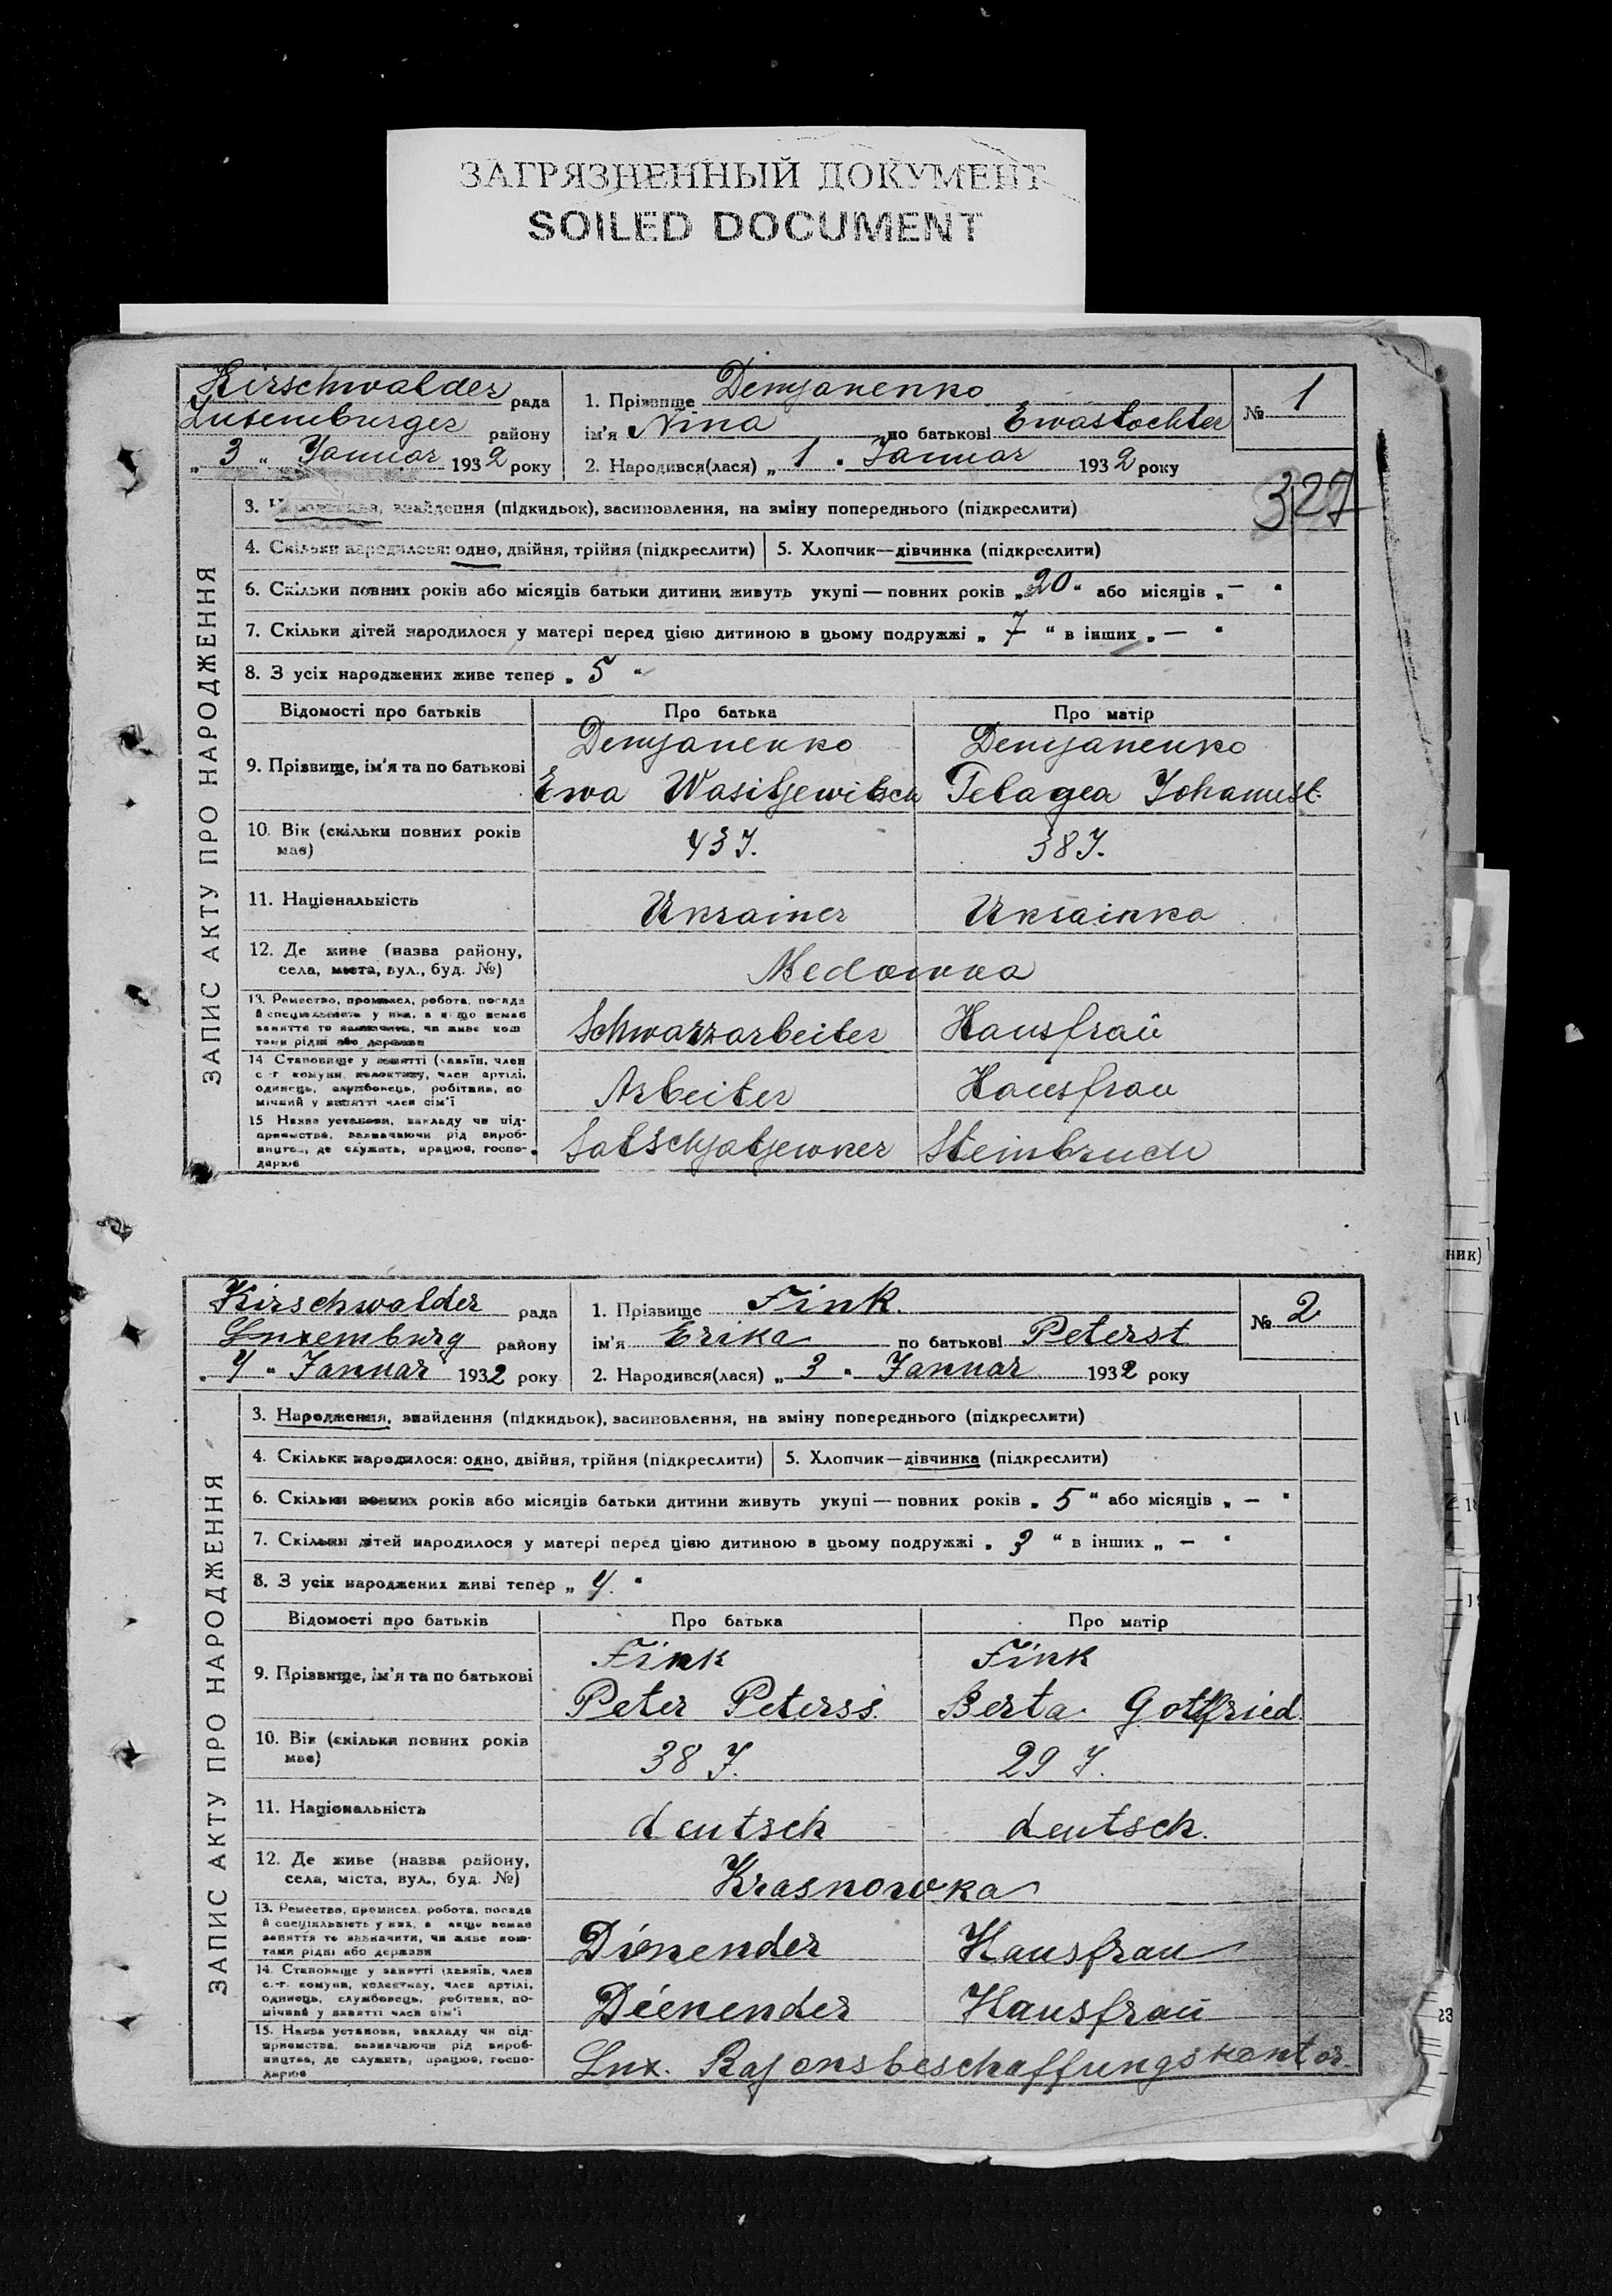 ЗАГРЯЗНЕННЫЙ ДОКУМЕНТ
SOILED DOCUMENT
Kirschwalder рада
Luxemburger району
„ 3 “ Januar 1932 року
1. Прізвище Demjanenko
ім'я Nina по батькові Ewastochter
2. Народився(лася) „ 1 “ Januar 1932 року
№ 1
327
ЗАПИС АКТУ ПРО НАРОДЖЕННЯ
3. Народження, знайдення (підкидьок), засиновлення, на зміну попереднього (підкреслити)
4. Скільки народилося: одно, двійня, трійня (підкреслити) 5. Хлопчик—дівчинка (підкреслити)
6. Скільки повних років або місяців батьки дитини живуть укупі — повних років „ 20 “ або місяців „ — “
7. Скільки дітей народилося у матері перед цією дитиною в цьому подружжі „ 7 “ в інших „ — “
8. З усіх народжених живе тепер „ 5 “
Відомості про батьків Про батька Про матір
9. Прізвище, ім'я та по батькові
Demjanenko Demjanenko
Ewa Wasiljewitsch Pelagea Johannest.
10. Вік (скільки повних років має)
43 J. 38 J.
11. Національність
Ukrainer Ukrainka
12. Де живе (назва району,
села, міста, вул., буд. №)
Medowka
13. Ремество, промисел, робота, посада
й спеціальність у них, а якщо немає
заняття то зазначити, чи живе кош
тами рідні або держави
Schwarzarbeiter Hausfraŭ
14 Становище у занятті (хазяїн, член
с.-г. комуни, колективу, член артілі,
одинець, службовець, робітник, по
мічний у занятті член сім'ї
Arbeiter Hausfrau
15 Назва установи, закладу чи під-
приємства, зазначаючи рід вироб-
ництва, де служить, працює, госпо-
дарює
Steinbruch
Kirschwalder рада
Luxemburg району
„ 4 “ Januar 1932 року
1. Прізвище Fink.
ім'я Erika по батькові Peterst
2. Народився(лася) „ 3 “ Januar 1932 року
№ 2
ЗАПИС АКТУ ПРО НАРОДЖЕННЯ
3. Народження, знайдення (підкидьок), засиновлення, на зміну попереднього (підкреслити)
4. Скільки народилося: одно, двійня, трійня (підкреслити) 5. Хлопчик—дівчинка (підкреслити)
6. Скільки повних років або місяців батьки дитини живуть укупі — повних років „ 5 “ або місяців „ — “
7. Скільки дітей народилося у матері перед цією дитиною в цьому подружжі „ 3 “ в інших „ — “
8. З усіх народжених живі тепер „ 4. “
Відомості про батьків Про батька Про матір
9. Прізвище, ім'я та по батькові
Fink Fink
Peter Peterss. Berta Gottfried
10. Вік (скільки повних років
має)
38 J. 29 J.
11. Національність
deutsch deutsch.
12. Де живе (назва району,
села, міста, вул., буд. №)
Krasnowka
13. Ремество, промисел, робота, посада
й спеціальність у них, а якщо немає
заняття то зазначити, чи живе кош-
тами рідні або держави
Dienender Hausfrau
14. Становище у занятті (хазяїн, член
с.-г. комуни, колективу, член артілі,
одинець, службовець, робітник, по-
мічний у занятті член сім'ї
Dienender Hausfraŭ
15. Назва установи, закладу чи під-
приємства, зазначаючи рід вироб-
ництва, де служить, працює, госпо-
дарює
Lux. Rajonsbeschaffungskantor.
ник)
23